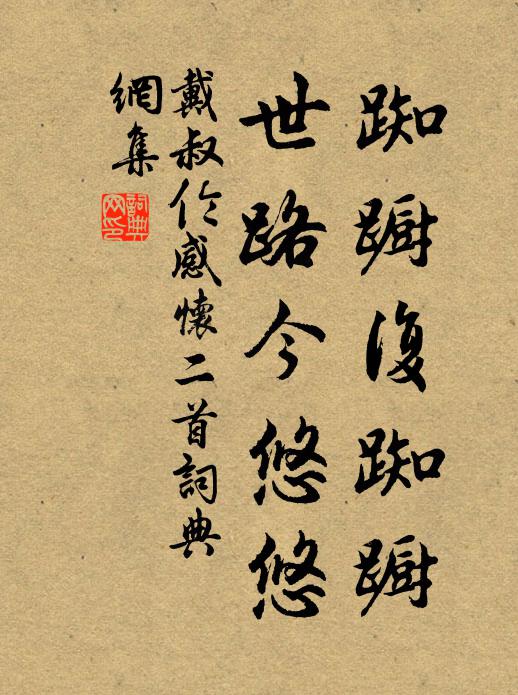 踟躕復踟躕
世路今悠悠
戴叔伦感懷二首詞典
網集
詞典网印